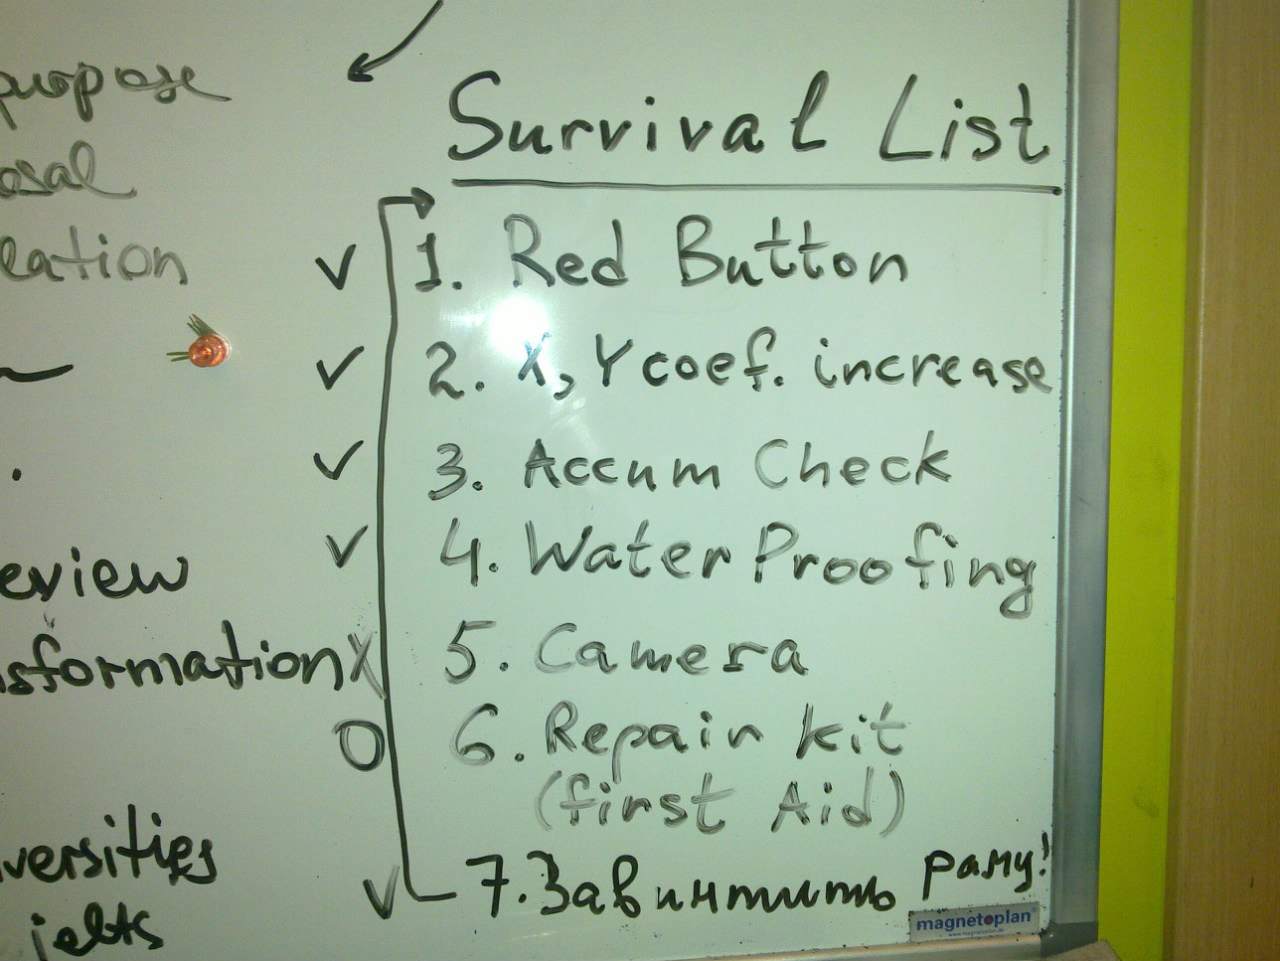 purpose
osal
eation
eview
nsformation
versities
ielts
Survival List
✓ 1. Red Button
✓ 2. X, Y coef. increase
✓ 3. Accum Check
✓ 4. Water Proofing
X 5. Camera
O 6. Repair kit
(first Aid)
✓ 7. Завинтить раму!
magnetoplan